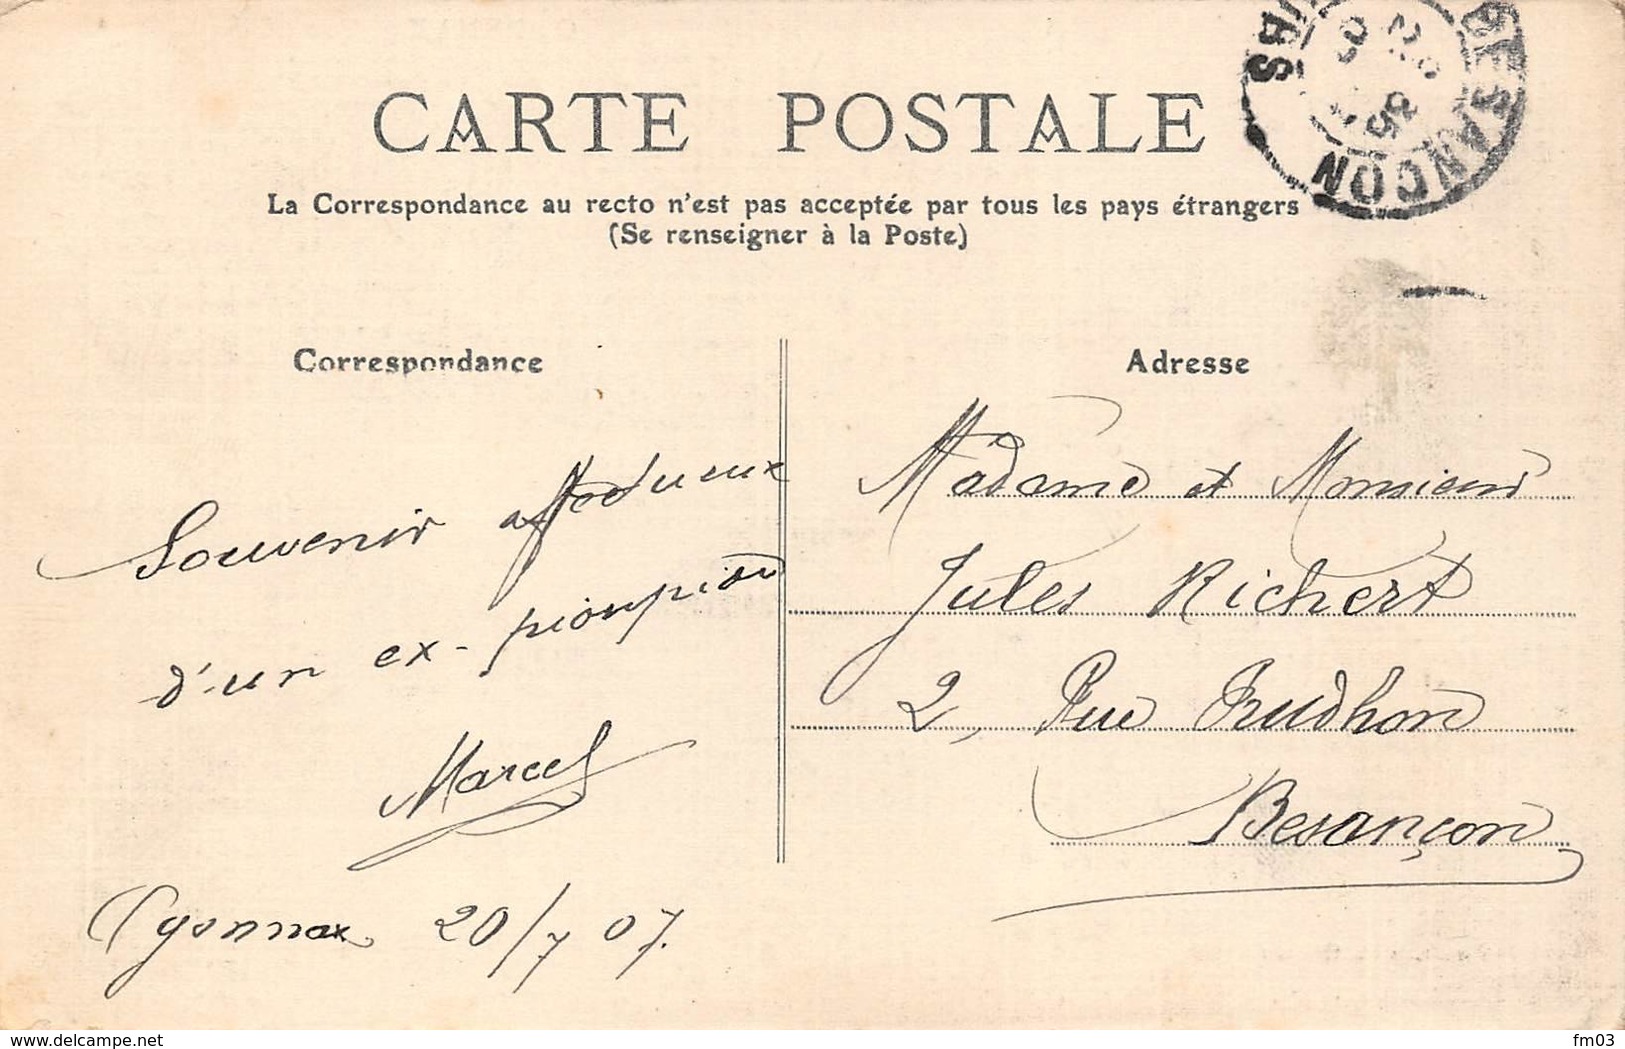 CARTE POSTALE
La Correspondance au recto n'est pas acceptée par tous les pays étrangers
(Se renseigner à la Poste)
BESANCON
Correspondance
Souvenir affectueux
d'un ex-pioupiou
Marcel
Oyonnax 20/7 07.
Adresse
Madame et Monsieur
Jules Richert
2, Rue Prudhon
Besançon
www.delcampe.net
fm03